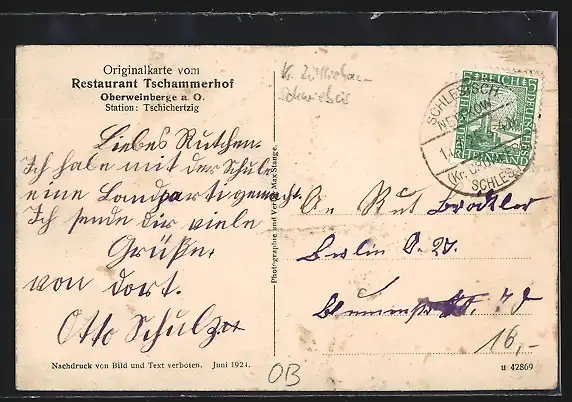 Originalkarte vom
Restaurant Tschammerhof
Oberweinberge a. O.
Station: Tschichertzig
Liebes Rutchen.
Ich habe mit der Schule
eine Landpartie gemacht.
Ich sende dir viele
Grüße
von dort.
Otto Schulze
Nachdruck von Bild und Text verboten. Juni 1924.
Photographie und Verlag Max Stange.
Kr. Züllichau-
Schwiebus
DEUTSCHES REICH
RHEINLAND
SCHLESISCH-
NETTKOW
SCHLES.
An Rut
Berlin O. 27.
16,-
OB
u 42869